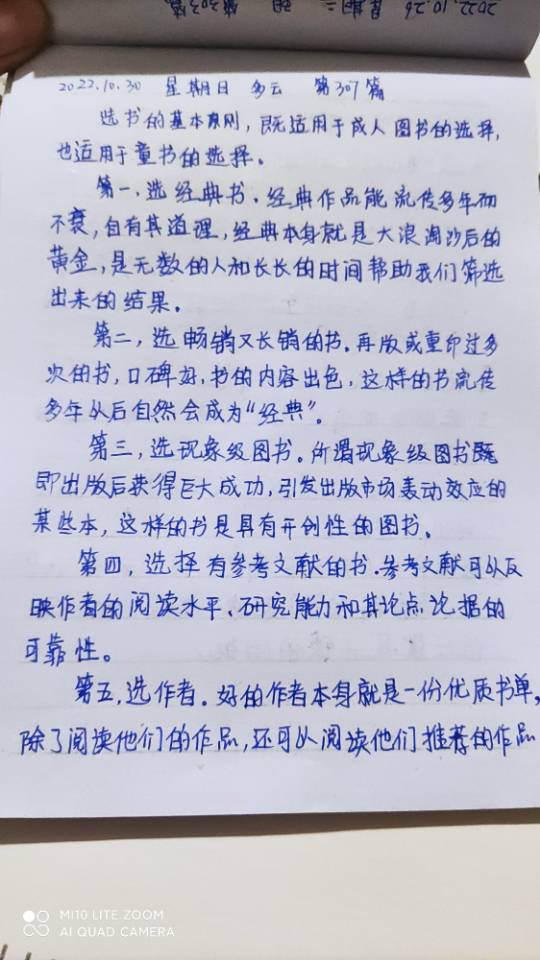 2022.10.26 星期三 第303篇
2022.10.30 星期日 多云 第307篇
选书的基本原则，既适用于成人图书的选择，
也适用于童书的选择。
第一，选经典书。经典作品能流传多年而
不衰，自有其道理，经典本身就是大浪淘沙后的
黄金，是无数的人和长长的时间帮助我们筛选
出来的结果。
第二，选畅销又长销的书。再版或重印过多
次的书，口碑好，书的内容出色，这样的书流传
多年以后自然会成为“经典”。
第三，选现象级图书。所谓现象级图书既
即出版后获得巨大成功，引发出版市场轰动效应的
某些本，这样的书是具有开创性的图书。
第四，选择有参考文献的书。参考文献可以反
映作者的阅读水平、研究能力和其论点，论据的
可靠性。
第五，选作者。好的作者本身就是一份优质书单，
除了阅读他们的作品，还可以阅读他们推荐的作品
MI 10 LITE ZOOM
AI QUAD CAMERA